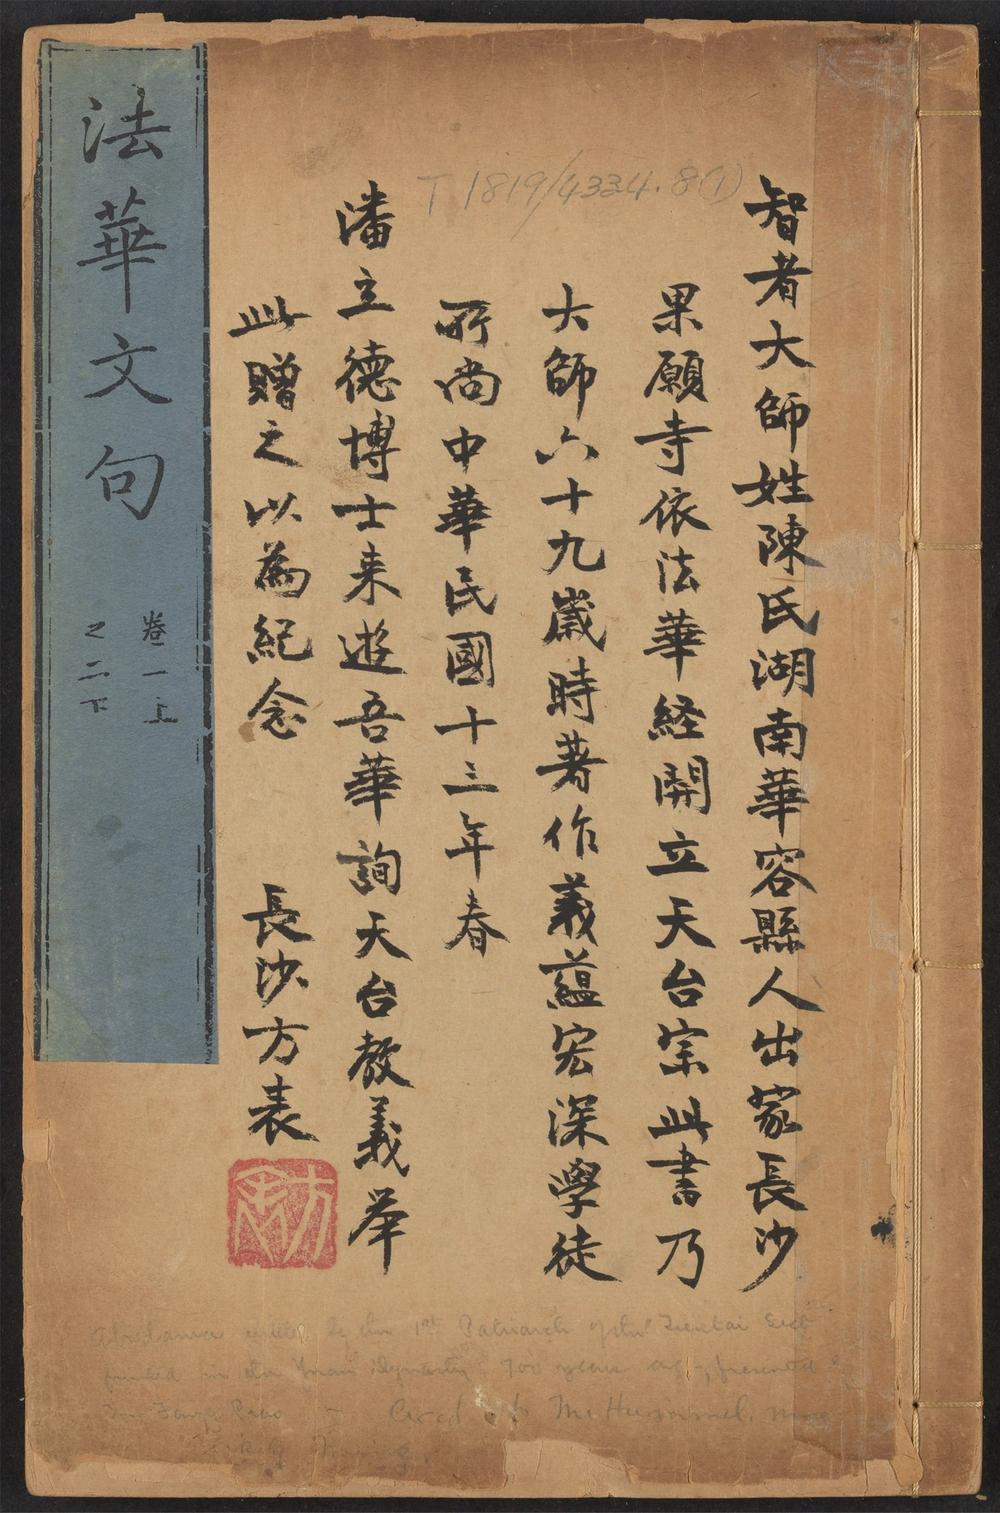 T 1819/4334.8(1)
智者大師姓陳氏湖南華容縣人出家長沙
果願寺依法華経開立天台宗此書乃
大師六十九歲時著作義蘊宏深學徒
所尚中華民國十三年春
潘立德博士来遊吾華詢天台教義举
此贈之以為紀念 長沙方表
法華文句
卷一上
之二下
by the 1st Patriarch of the Tientai Sect
printed in the Yuan Dynasty 700 years